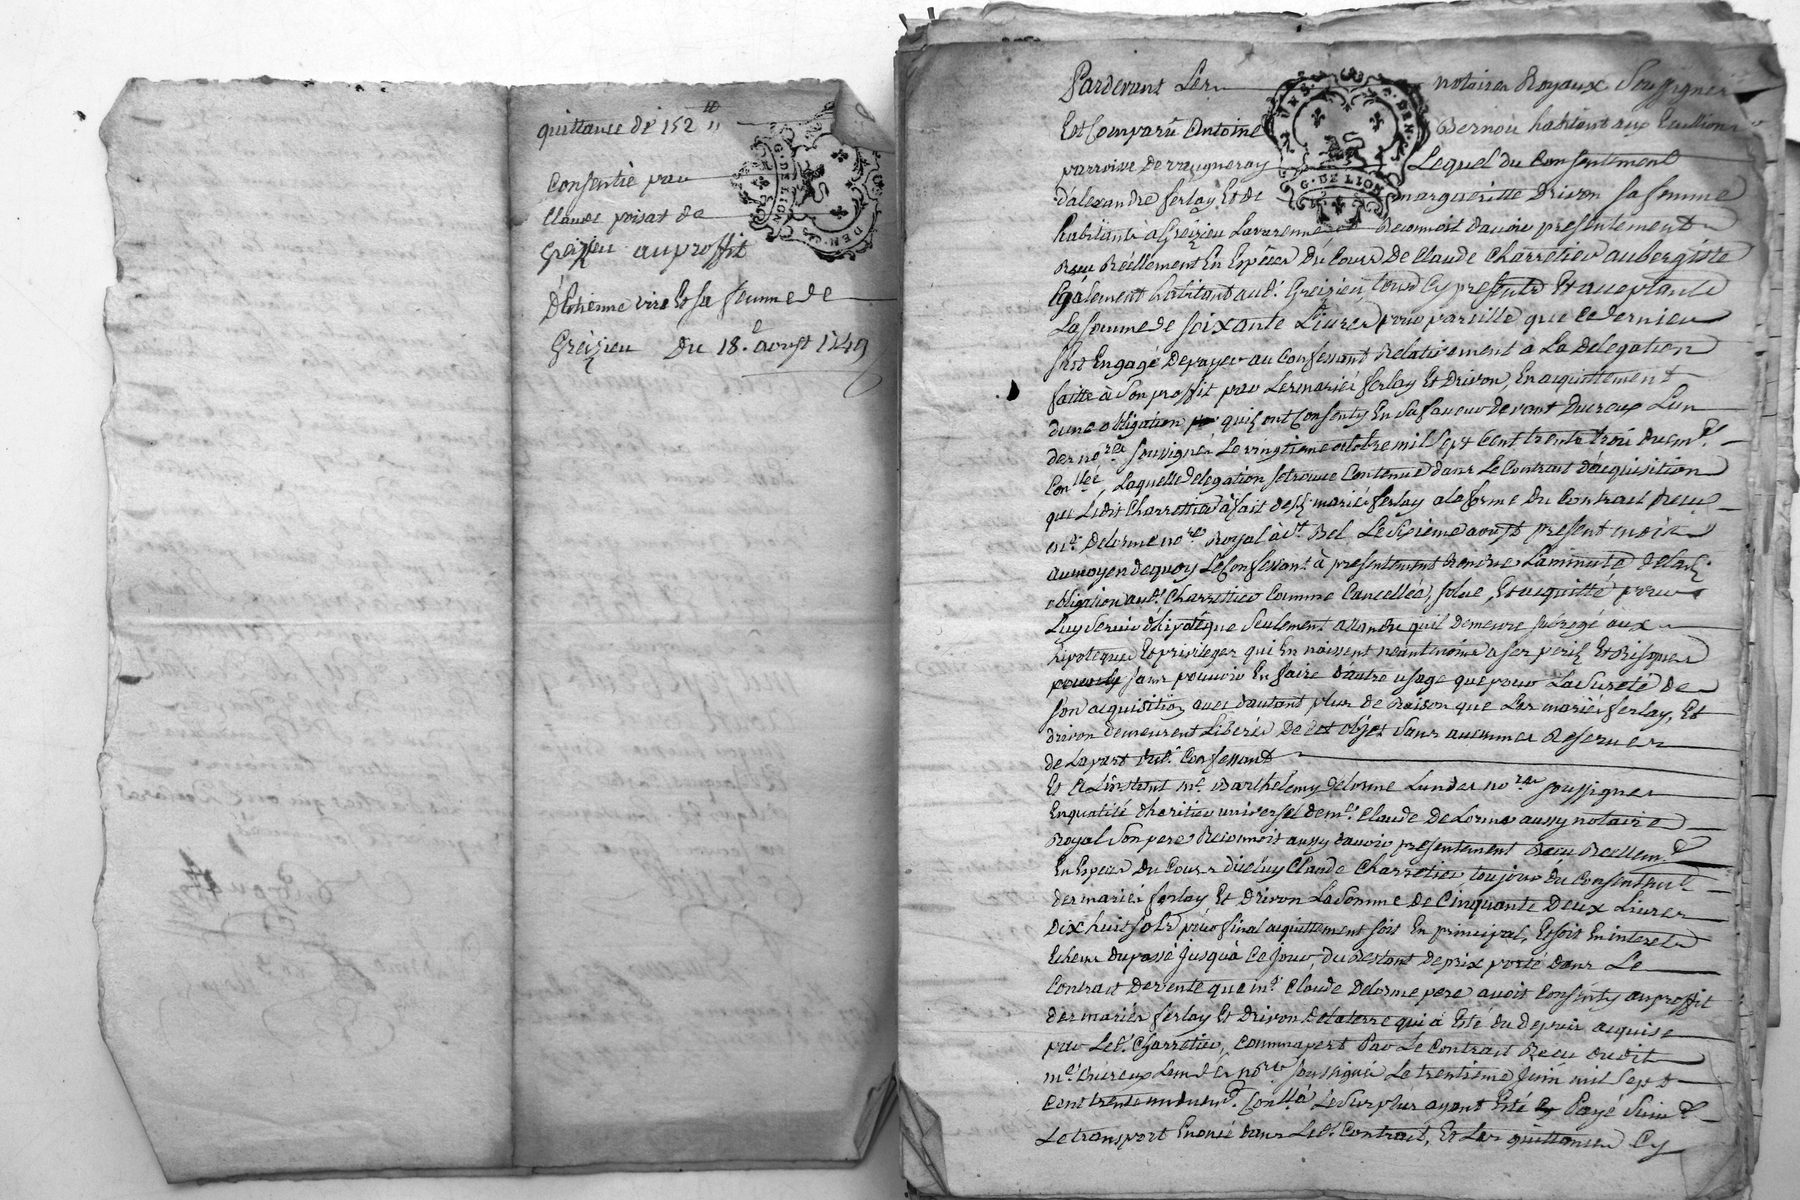 quittance de 152 ₶
Consentie par
Claude poisat de
Greizieu au proffit
D'Etienne vire Et sa femme de
Greizieu Du 18.e aoust 1749
G. DE LION
DEN
Pardevant Les notaires Royaux Soussignés
Est Comparu Antoine Bernou habitant aux
parroisse de vaugneray Lequel du Consentement
d'alexandre ferlay Et de margueritte Drivon sa femme
habitants à Greizieu Lavarenne Reconnoit d'avoir presentement
Receu Réellement En Especes Du Cours de Claude Charretier aubergiste
Egalement habitant aud. Greizieu, Cy present Et acceptant
La somme de soixante Livres pour pareille que Ce dernier
s'est Engagé de payer au Confessant Relativement à La Delegation
faitte à son proffit par Les mariés ferlay Et Drivon, En acquittement
dune obligation quils ont Consenty En sa faveur devant Ducreux Lun
des no.res soussignés Le vingtieme octobre mil sept Cent trente trois
Con.llée Laquelle delegation se trouve Contenue dans Le Contrat d'acquisition
que Ledit Charrettier à fait desd. mariés ferlay a la forme Du Contrat Receu
m.e Delorme no.re Royal à St. Bel Le sixieme aoust present mois
au moyen de quoy Le Confessant à presentement Remis La minutte de lad.
obligation aud. Charrettier Comme Cancellée, solue, Et acquitté pour
Luy servir d'hipoteque seulement attendu qu'il demeure subrogé aux
hipoteques Et privileges qui En naissent neantmoins a ses perils Et Risques
sans pouvoir En faire d'autre usage que pour La sureté de
son acquisition avec d'autant plus de Raison que Les mariés ferlay, Et
drivon demeurent Liberés De Cet objet sans aucunnes Reserves
de La part dud. Confessant
Et à L'instant m.e Barthelemy delorme Lun des no.res soussignes
En qualité d'heritier universel de m.e Claude Delorme aussy notaire
Royal son pere Reconnoit aussy d'avoir presentement Receu Reellem.t
En Especes Du Cours dicluy Claude Charretier toujours du Consentem.t
des mariés ferlay Et drivon La somme de Cinquante Deux Livres
Dix huit sols pour final acquittement soit En principal, Et soit En interets
Echeus du passé jusquà Ce jour, du Restant de prix porté dans Le
Contrat De vente que m.e Claude Delorme pere avoit Consenty au proffit
des mariés ferlay Et drivon de la terre qui à Esté du depuis acquise
par Led. Charretier, Comm'apert Par Le Contrat Receu dudit
m.e Ducreux Lun des no.res soussignés Le trentieme Juin mil sept
Cent trente un Con.llé Le surplus ayant Esté Payé suiv.t
Le transport Enoncé dans Led. Contrat, Et Les quittances Cy
G. DE LION
DEN